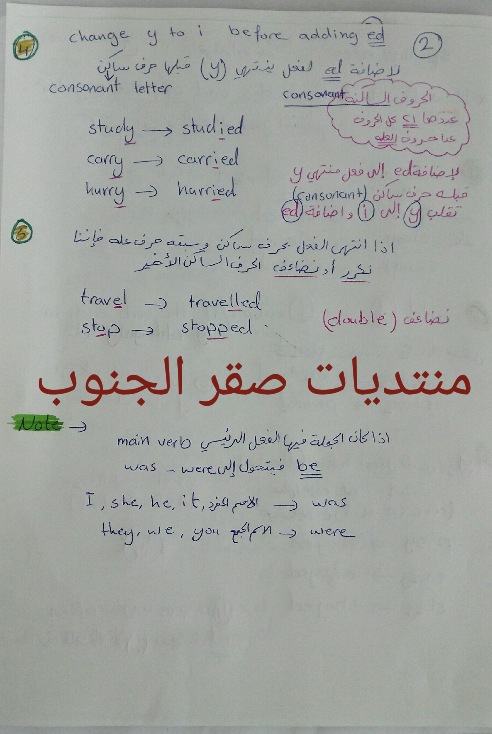 2
4 change y to i before adding ed
لإضافة ed لفعل ينتهي (y) قبلها حرف ساكن
consonant letter
consonant الحروف الساكنة
عددها 21 كل الحروف
عدا حروف العلة
study → studied
carry → carried
hurry → hurried
لإضافة ed إلى فعل منتهي y
قبله حرف ساكن (consonant)
تقلب y إلى i واضافة ed
5
اذا انتهى الفعل بحرف ساكن وسبقه حرف علة فإننا
نكرر أو نضاعف الحرف الساكن الأخير
travel → travelled
stop → stopped
نضاعف (double)
منتديات صقر الجنوب
Note →
اذا كان الجملة فيها الفعل الرئيسي main verb
be فيتحول إلى was - were
I, she, he, it, الاسم المفرد → was
they, we, you الاسم الجمع → were